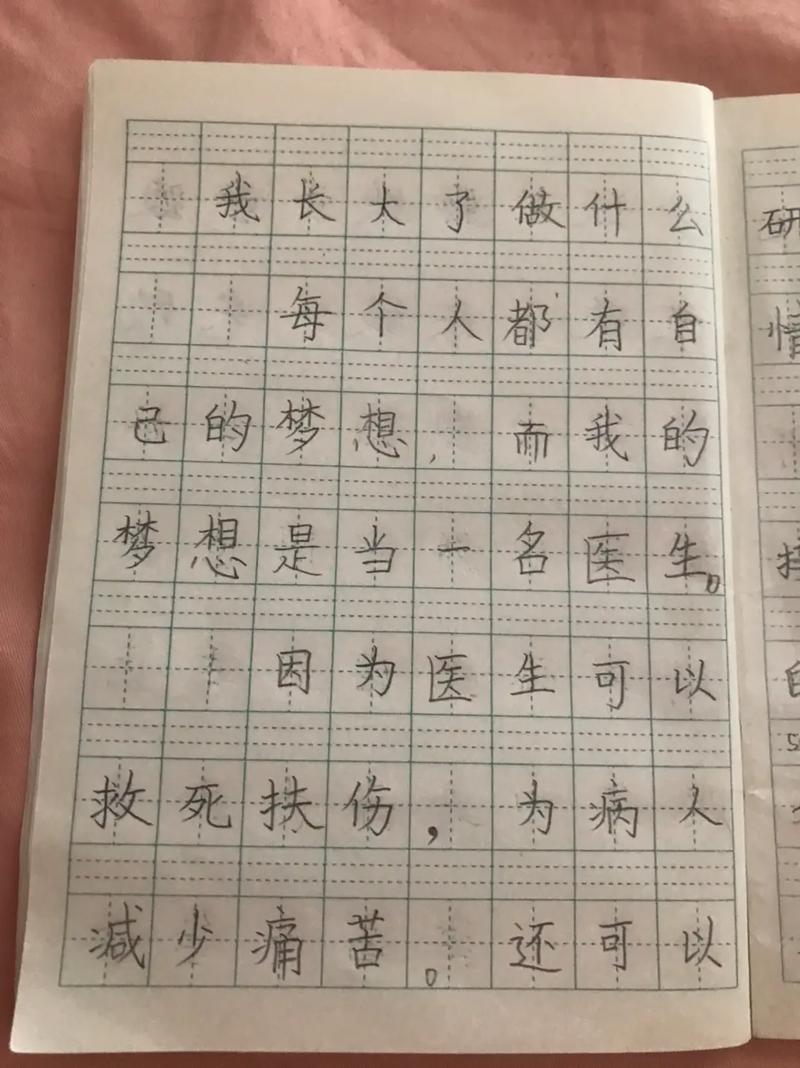 我长大了做什么
每个人都有自
己的梦想，而我的
梦想是当一名医生。
因为医生可以
救死扶伤，为病人
减少痛苦。还可以
研